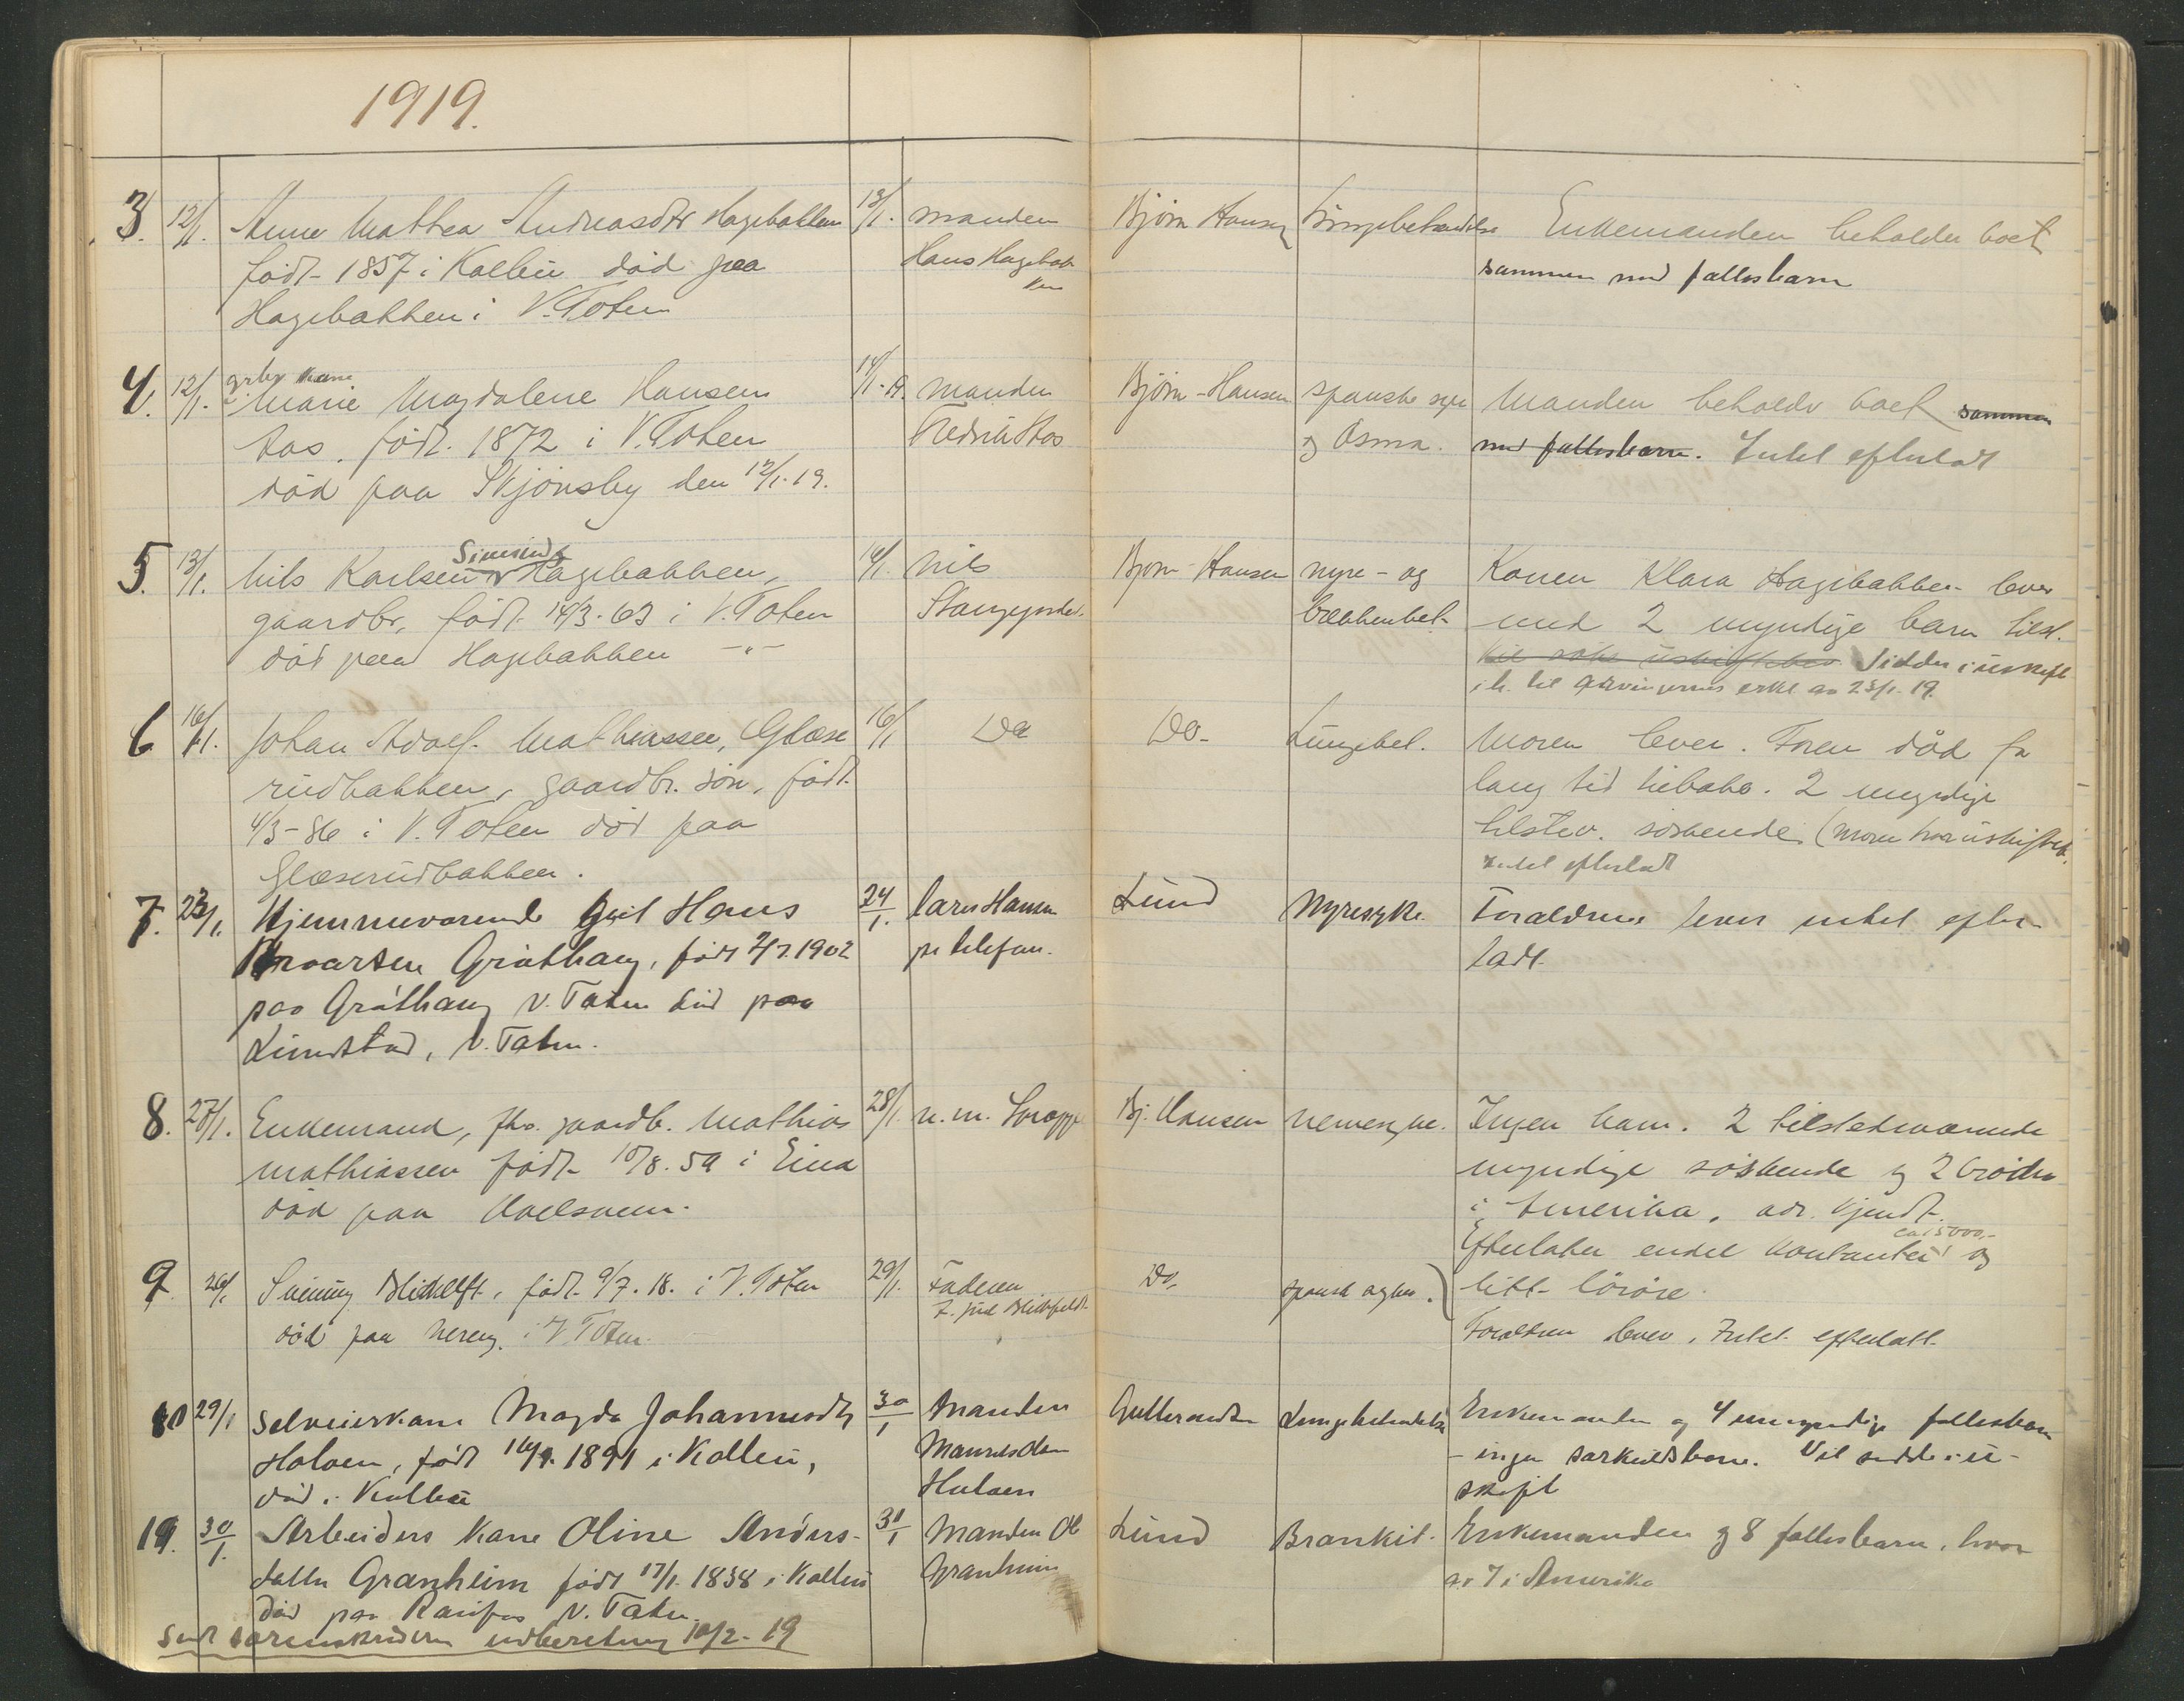 1919.
3. 12/1. Anne Mathea Andreasdtr Hagebakken 13/1. manden Bjørn Hansen Lungebetændelse Enkemanden beholder boet
født 1857 i Kolbu død paa Hans Hagebak sammen med fællesbarn
Hagebakken i V. Toten ken
4. 12/1. arbr kone
Marie Magdalene Hansen 14/1-19. manden Bjørn-Hansen spanske syke Manden beholder boet sammen
født. 1872 i V. Toten Fredrik og Asma. med fællesbarn. Intet efterladt
død paa Skjønsby den 12/1.19.
5. 13/1. Nils Karlsen Hagebakken, 14/1. Nils Bjørn-Hansen nyre- og Konen Klara Hagebakken lever
gaardbr, født 14/3-63 i V. Toten med 2 myndige barn tilst.
død paa Hagebakken -"- Sidder i uskift
i h. til arvingernes erkl av 23/1. 19.
6 16/1. Johan Adolf Mathiassen, Glæse 16/1 Do Do- Lungebet. Moren lever. Faren død for
rudbakken, gaardbr. søn, født lang tid tilbake. 2 myndige
4/3-86 i V. Toten død paa tilstev. søskende (moren har uskiftet.
Glæserudbakken. Intet efterladt
7. 23/1. Hjemmeværende gut Hans 24/1. Lars Hansen Lund Nyresyke. Forældrene lever intet efter-
født 2/7 1902 pr telefon. ladt
paa V. Toten død paa
Lundstad, V. Toten.
8. 27/1. Enkemand, fhv. gaardb. Mathias 28/1. Bj. Hansen Ingen barn. 2 tilstedeværende
Mathiassen født 10/8. 59 i Eina myndige søskende og 2 brødre
død paa i Amerika, adr. kjendt.
ca 15000,-
Efterlater endel kontanter og
9. 26/1 født 9/7. 18. i V. Toten 29/1. Faderen Do, spansk syke.) litt løsøre.
død paa i V Toten. Forældrene lever. Intet efterlatt
10 29/1 Selveierkone Magda Johannesdtr 30/1 Manden Gulbrandsen Lungebetændelse Enkemanden og 4 umyndige fællesbarn
født 1891 i Kolbu, - ingen særkuldsbarn. Vil sidde i u-
død i Kolbu skifte
11. 30/1. Arbeiders kone Oline Anders- 31/1 Manden Ol Lund Bronkit. Enkemanden og 8 fællesbarn, hvor
datter Granheim født 17/1. 1838 i Kolbu Granheim av 7 i Amerika
død paa Raufos V. Toten.
Sendt sorenskriveren indberetning 10/2-19